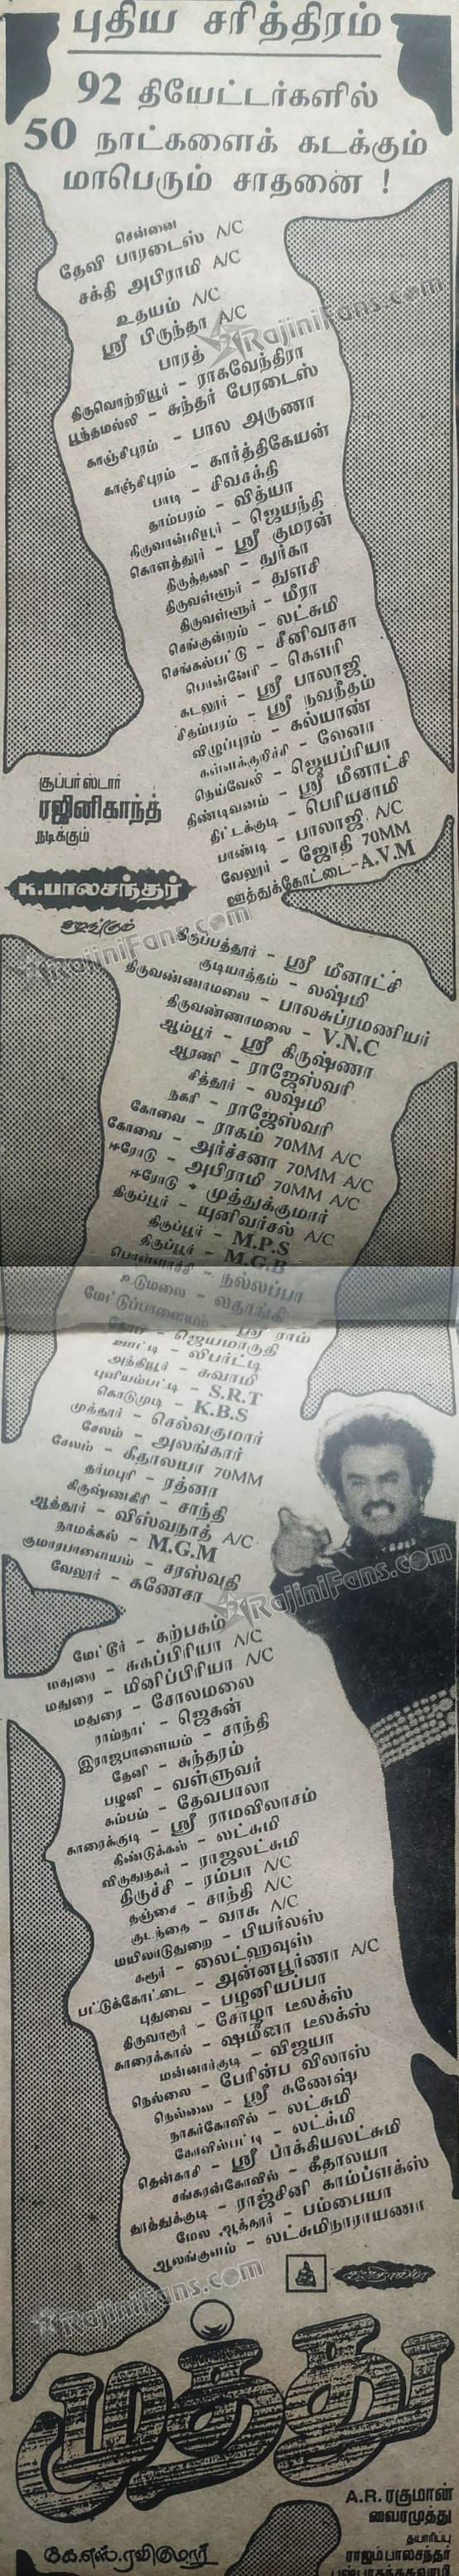 புதிய சரித்திரம்
92 தியேட்டர்களில்
50 நாட்களைக் கடக்கும்
மாபெரும் சாதனை !
சென்னை
தேவி பாரடைஸ் A/C
சக்தி அபிராமி A/C
உதயம் A/C
ஸ்ரீ பிருந்தா A/C
பாரத்
RajiniFans.com
திருவொற்றியூர் - ராகவேந்திரா
பூந்தமல்லி - சுந்தர் பேரடைஸ்
காஞ்சிபுரம் - பால அருணா
காஞ்சிபுரம் - கார்த்திகேயன்
பாடி - சிவசக்தி
தாம்பரம் - வித்யா
திருவான்மியூர் - ஜெயந்தி
கொளத்தூர் - ஸ்ரீ குமரன்
திருத்தணி - துர்கா
திருவள்ளூர் - துளசி
திருவள்ளூர் - மீரா
செங்குன்றம் - லட்சுமி
செங்கல்பட்டு - சீனிவாசா
பொன்னேரி - கௌரி
கடலூர் - ஸ்ரீ பாலாஜி
சிதம்பரம் - ஸ்ரீ நவநீதம்
விழுப்புரம் - கல்யாண்
கள்ளக்குறிச்சி - லேனா
நெய்வேலி - ஜெயப்ரியா
திண்டிவனம் - ஸ்ரீ மீனாட்சி
திட்டக்குடி - பெரியசாமி
பாண்டி - பாலாஜி A/C
வேலூர் - ஜோதி 70MM
ஊத்துக்கோட்டை - A.V.M
சூப்பர்ஸ்டார்
ரஜினிகாந்த்
நடிக்கும்
கே.பாலசந்தர்
வழங்கும்
RajiniFans.com
திருப்பத்தூர் - ஸ்ரீ மீனாட்சி
குடியாத்தம் - லஷ்மி
திருவண்ணாமலை - பாலசுப்ரமணியர்
திருவண்ணாமலை - V.N.C
ஆம்பூர் - ஸ்ரீ கிருஷ்ணா
ஆரணி - ராஜேஸ்வரி
சித்தூர் - லஷ்மி
நகரி - ராஜேஸ்வரி
கோவை - ராகம் 70MM A/C
கோவை - அர்ச்சனா 70MM A/C
ஈரோடு - அபிராமி 70MM A/C
ஈரோடு - முத்துக்குமார்
திருப்பூர் - யுனிவர்சல் A/C
திருப்பூர் - M.P.S
திருப்பூர் - M.G.B
பொள்ளாச்சி - நல்லப்பா
உடுமலை - லதாங்கி
மேட்டுப்பாளையம் - ஸ்ரீ ராம்
கோபி - ஜெயமாருதி
ஊட்டி - லிபர்ட்டி
அந்தியூர் - சுவாமி
புளியம்பட்டி - S.R.T
கொடுமுடி - K.B.S
முத்தூர் - செல்வகுமார்
சேலம் - அலங்கார்
சேலம் - கீதாலயா 70MM
தர்மபுரி - ரத்னா
கிருஷ்ணகிரி - சாந்தி
ஆத்தூர் - விஸ்வநாத் A/C
நாமக்கல் - M.G.M
குமாரபாளையம் - சரஸ்வதி
வேலூர் - கணேசா
RajiniFans.com
மேட்டூர் - கற்பகம்
மதுரை - சுகப்பிரியா A/C
மதுரை - மினிப்பிரியா A/C
மதுரை - சோலமலை
ராம்நாட் - ஜெகன்
இராஜபாளையம் - சாந்தி
தேனி - சுந்தரம்
பழனி - வள்ளுவர்
கம்பம் - தேவபாலா
காரைக்குடி - ஸ்ரீ ராமவிலாசம்
திண்டுக்கல் - லட்சுமி
விருதுநகர் - ராஜலட்சுமி
திருச்சி - ரம்பா A/C
தஞ்சை - சாந்தி A/C
குடந்தை - வாசு A/C
மயிலாடுதுறை - பியர்லஸ்
கரூர் - லைட்ஹவுஸ்
பட்டுக்கோட்டை - அன்னபூர்ணா A/C
புதுவை - பழனியப்பா
திருவாரூர் - சோழா டீலக்ஸ்
காரைக்கால் - ஷமீனா டீலக்ஸ்
மன்னார்குடி - விஜயா
நெல்லை - பேரின்ப விலாஸ்
நெல்லை - ஸ்ரீ கணேஷ்
நாகர்கோவில் - லட்சுமி
கோவில்பட்டி - லட்சுமி
தென்காசி - ஸ்ரீ பாக்கியலட்சுமி
சங்கரன்கோவில் - கீதாலயா
தூத்துக்குடி - ராஜ்சினி காம்ப்ளக்ஸ்
மேல ஆத்தூர் - பம்பையா
ஆலங்குளம் - லட்சுமிநாராயணா
கவிதாலயா
RajiniFans.com
முத்து
A.R. ரகுமான்
வைரமுத்து
தயாரிப்பு
ராஜம் பாலசந்தர்
புஷ்பா கந்தசுவாமி
கே.எஸ்.ரவிகுமார்